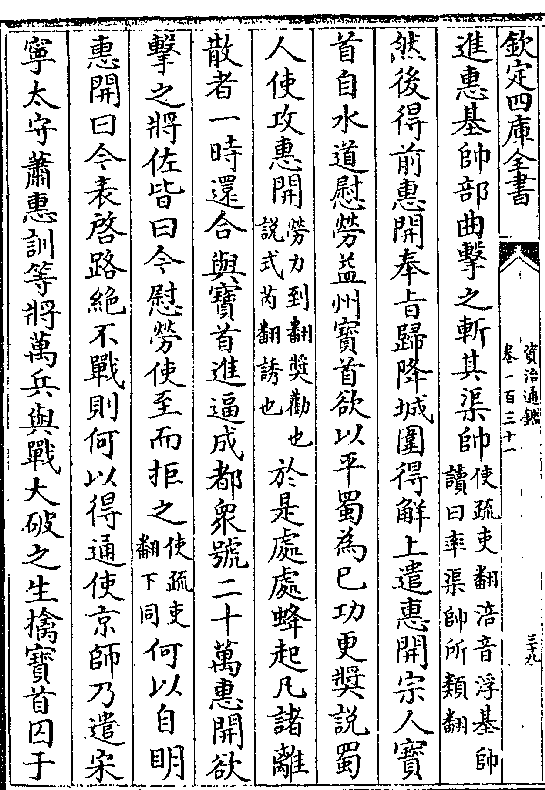 欽定四庫全書
資治通鑑
卷一百三十一
三十九
進惠基帥部曲擊之斬其渠帥使疏吏翻涪音浮基帥讀曰率渠帥所類翻
然後得前惠開奉旨歸降城圍得解上遣惠開宗人寶
首自水道慰勞益州寶首欲以平蜀為已功更奬説蜀
人使攻惠開勞力到翻奬勸也説式芮翻誘也於是處處蜂起凡諸離
散者一時還合與寶首進逼成都衆號二十萬惠開欲
擊之將佐皆曰今慰勞使至而拒之使疏吏翻下同何以自明
惠開曰今表啓路絶不戰則何以得通使京師乃遣宋
寧太守蕭惠訓等將萬兵與戰大破之生擒寶首囚于